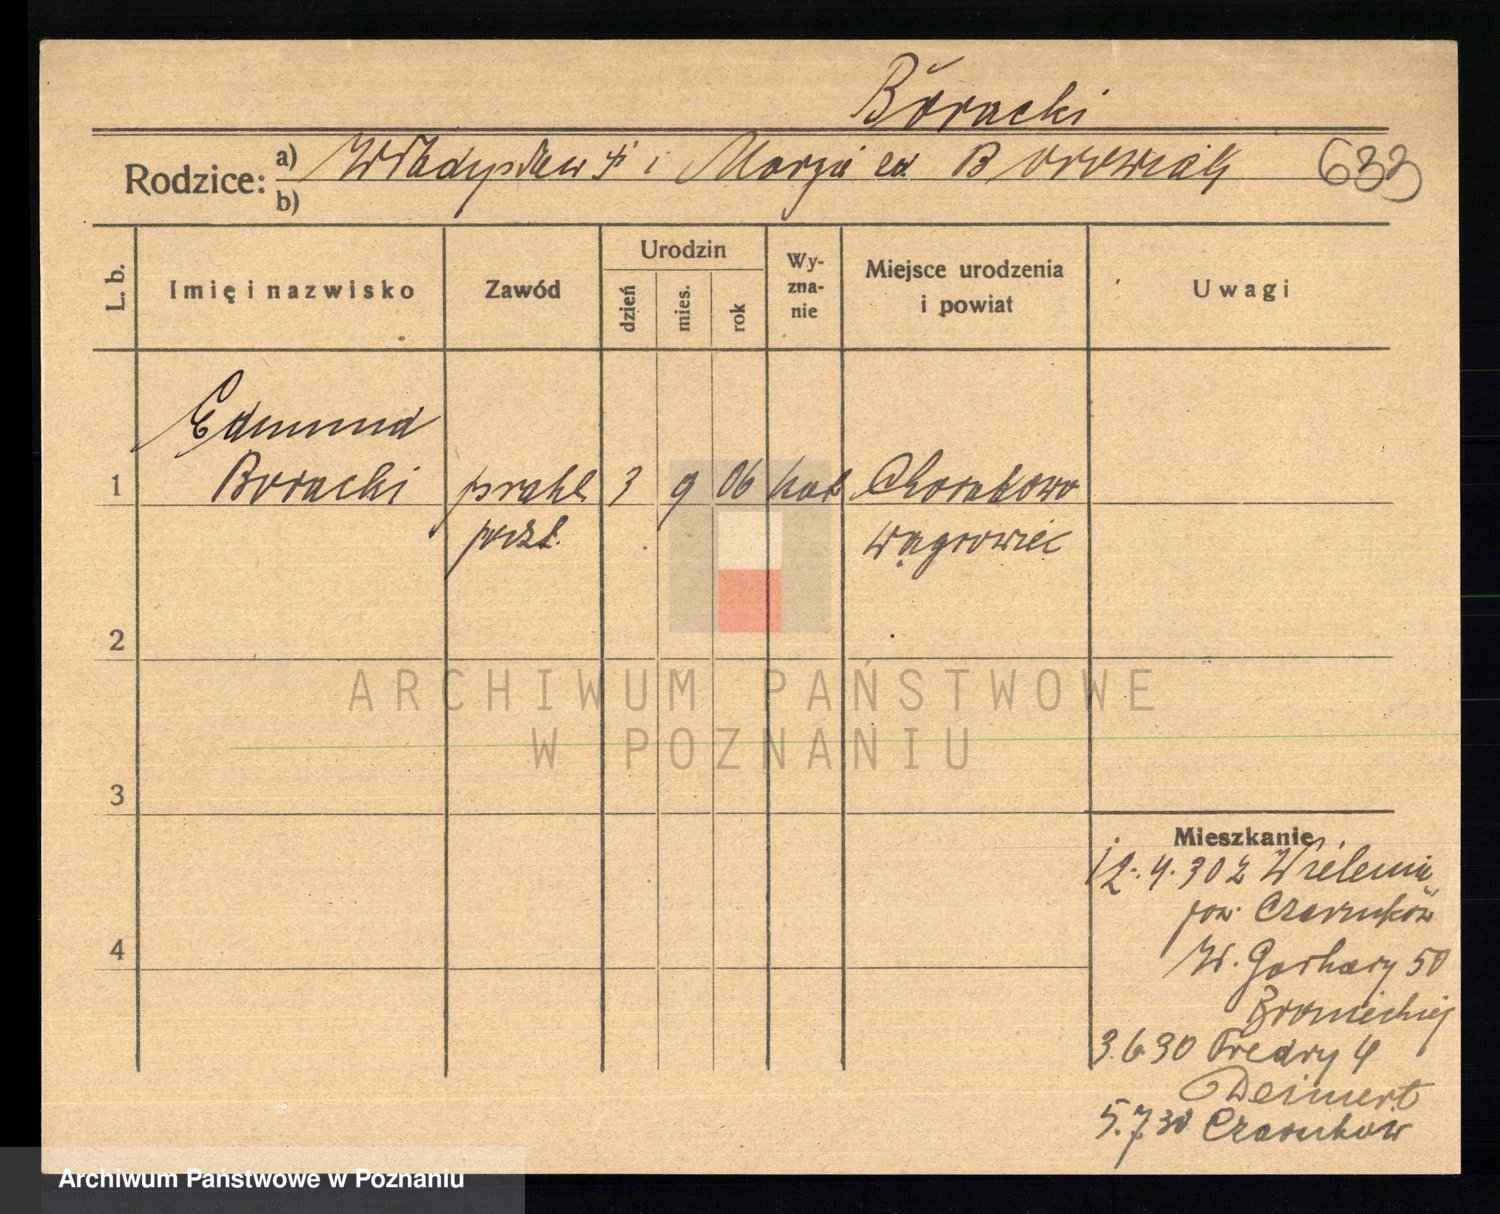 Boracki
Rodzice: a) Władysław i Marja zd. Borowiak 633
b)
L. b. Imię i nazwisko Zawód Urodzin dzień mies. rok Wyznanie Miejsce urodzenia i powiat Uwagi
Edmund
1 Boracki prakt 3 9 06 kat
poczt. Wągrowiec
2
ARCHIWUM PAŃSTWOWE
W POZNANIU
3
Mieszkanie
12.4.30 z Wielenia
pow. Czarnków
W. Garbary 50
3.6.30 Fredry 4
5.7.30 Czarnków
4
Archiwum Państwowe w Poznaniu